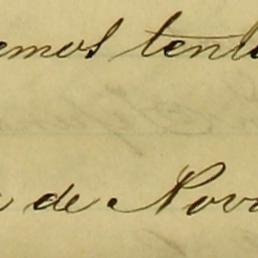 emos tent
de Nov